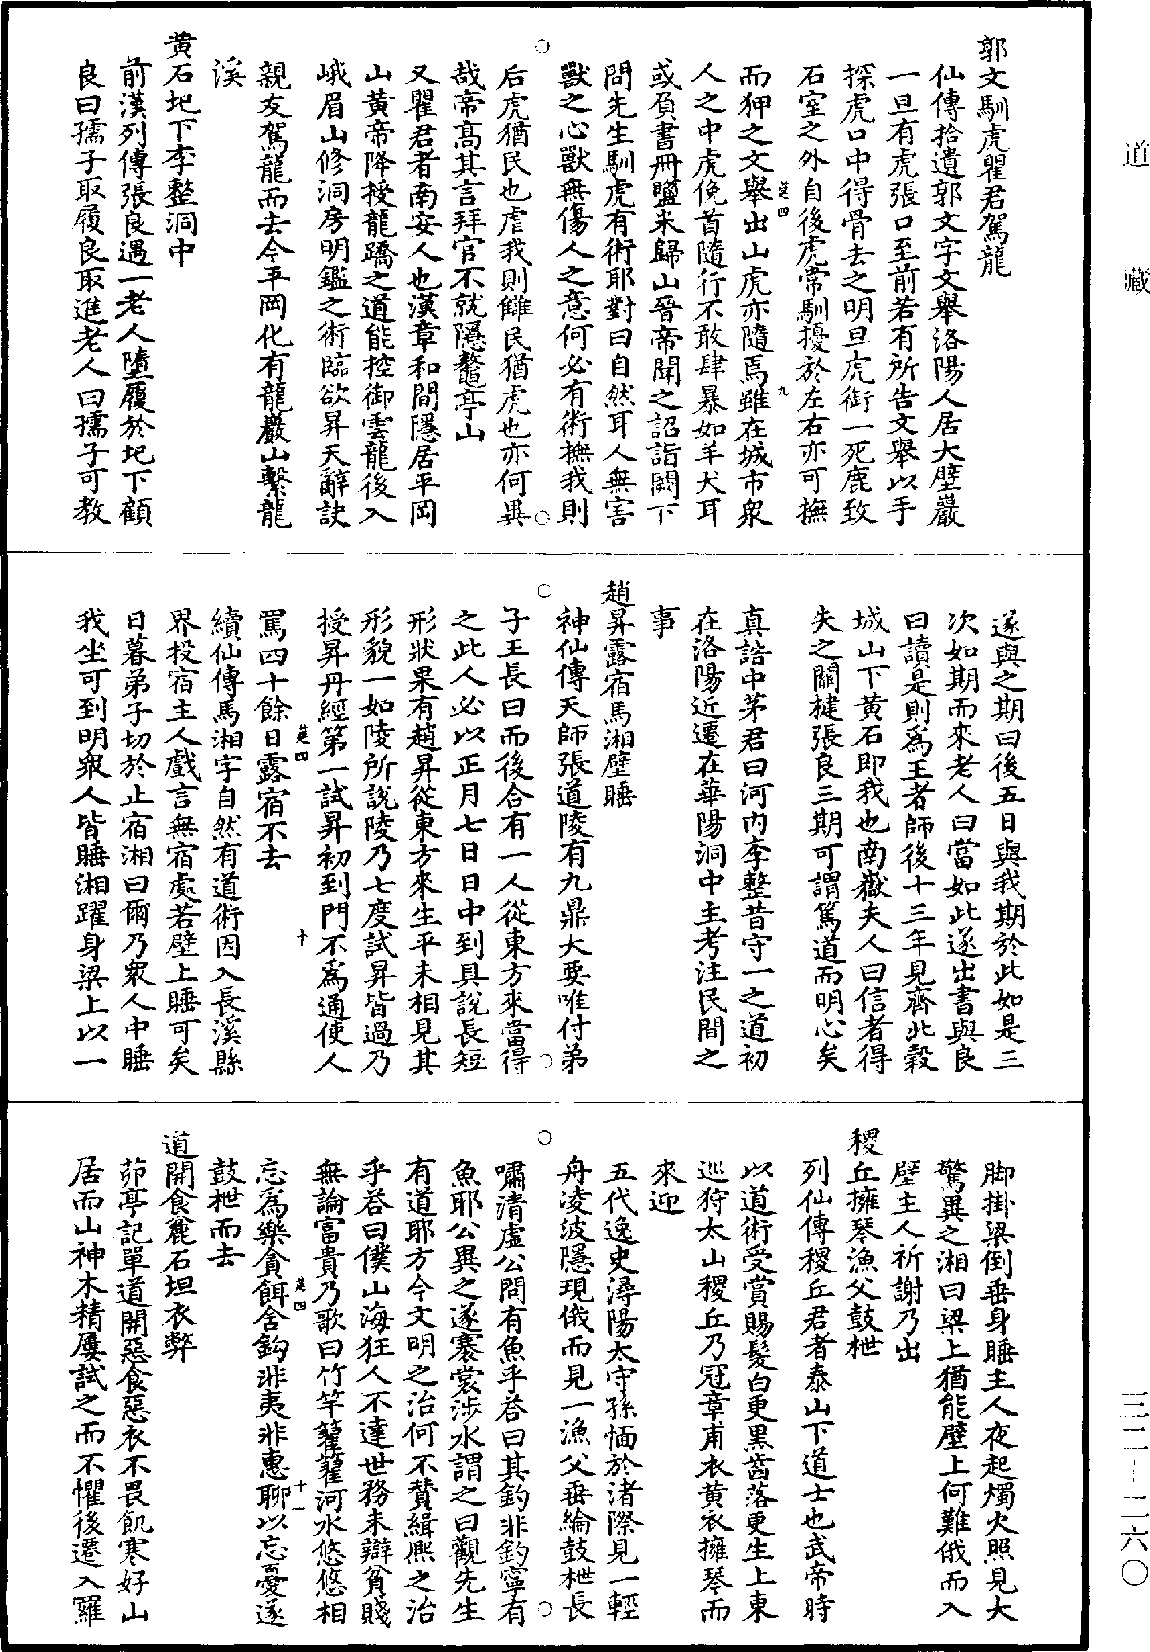 道藏
郭文馴虎瞿君駕龍
仙傳拾遺郭文字文舉洛陽人居大壁巖
一旦有虎張口至前若有所告文舉以手
探虎口中得骨去之明旦虎銜一死鹿致
石室之外自後虎常馴擾於左右亦可撫
而狎之文舉出山虎亦隨焉雖在城市衆
人之中虎俛首隨行不敢肆暴如羊犬耳
或負書冊鹽米歸山晉帝聞之詔詣闕下
問先生馴虎有術耶對曰自然耳人無害
獸之心獸無傷人之意何必有術撫我則
后虎猶民也虐我則讎民猶虎也亦何異
哉帝高其言拜官不就隱鼇亭山
又瞿君者南安人也漢章和間隱居平岡
山黃帝降授龍蹻之道能控御雲龍後入
峨眉山修洞房明鑑之術臨欲昇天辭訣
親友駕龍而去今平岡化有龍巖山繫龍
溪
黃石圯下李整洞中
前漢列傳張良遇一老人墮履於圯下顧
良曰孺子取履良取進老人曰孺子可教
遂與之期曰後五日與我期於此如是三
次如期而來老人曰當如此遂出書與良
曰讀是則爲王者師後十三年見齊北穀
城山下黃石即我也南嶽夫人曰信者得
失之關楗張良三期可謂篤道而明心矣
真誥中茅君曰河內李整昔守一之道初
在洛陽近遷在華陽洞中主考注民間之
事
趙昇露宿馬湘壁睡
神仙傳天師張道陵有九鼎大要唯付弟
子王長曰而後合有一人從東方來當得
之此人必以正月七日日中到具說長短
形狀果有趙昇從東方來生平未相見其
形貌一如陵所說陵乃七度試昇皆過乃
授昇丹經第一試昇初到門不爲通使人
罵四十餘日露宿不去
續仙傳馬湘字自然有道術因入長溪縣
界投宿主人戲言無宿處若壁上睡可矣
日暮弟子切於止宿湘曰爾乃衆人中睡
我坐可到明衆人皆睡湘躍身梁上以一
脚掛梁倒垂身睡主人夜起燭火照見大
驚異之湘曰梁上猶能壁上何難俄而入
壁主人祈謝乃出
稷丘擁琴漁父鼓枻
列仙傳稷丘君者泰山下道士也武帝時
以道術受賞賜髮白更黑齒落更生上東
巡狩太山稷丘乃冠章甫衣黃衣擁琴而
來迎
五代逸史潯陽太守孫愐於渚際見一輕
舟凌波隱現俄而見一漁父垂綸鼓枻長
嘯清虛公問有魚乎荅曰其釣非釣寧有
魚耶公異之遂褰裳涉水謂之曰觀先生
有道耶方今文明之治何不贊緝熙之治
乎荅曰僕山海狂人不達世務未辯貧賤
無論富貴乃歌曰竹竿籊籊河水悠悠相
忘爲樂貪餌含鈎非夷非惠聊以忘憂遂
鼓枻而去
道開食麄石坦衣弊
茆亭記單道開惡食惡衣不畏飢寒好山
居而山神木精屢試之而不懼後遷入羅
三二－二六〇